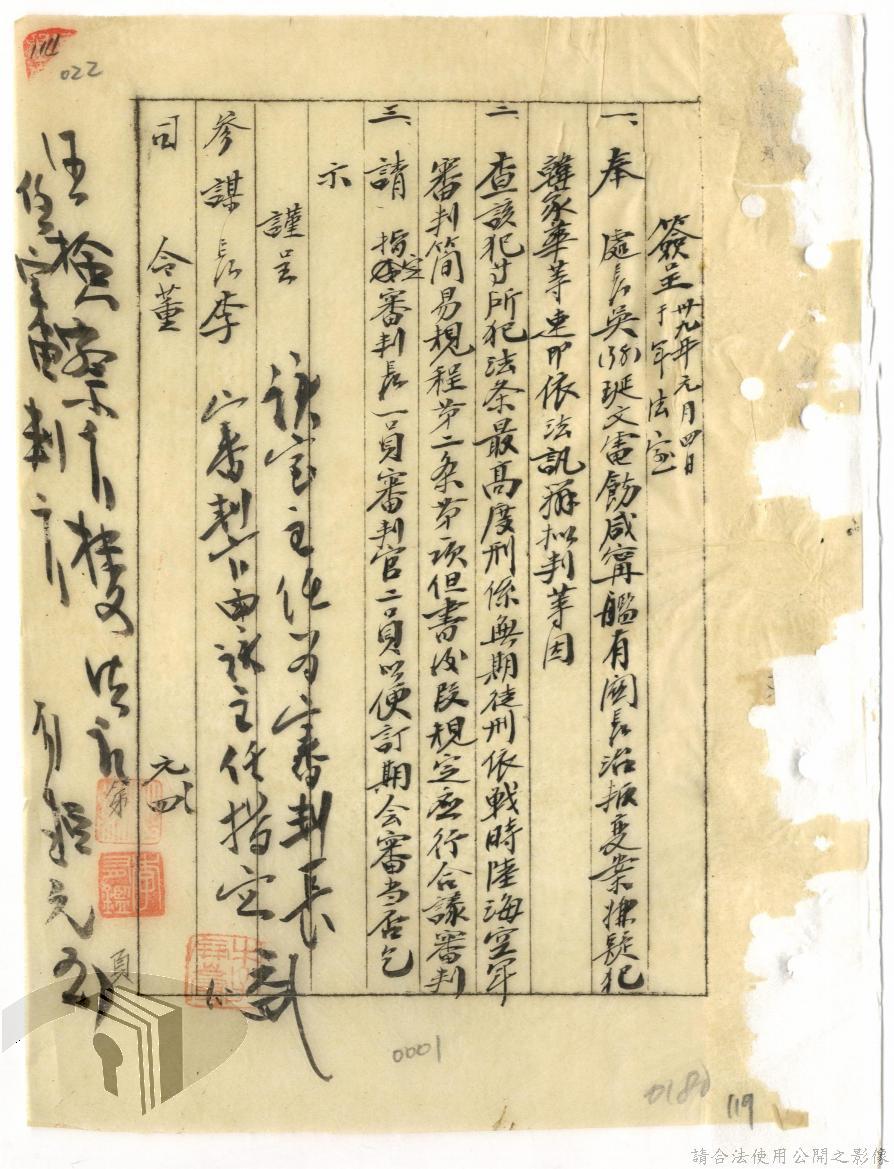 簽呈 卅九年元月四日
于軍法室
一、奉
處長吳(39)珽文電飭咸寧艦有關長治叛變案嫌疑犯
韓家華等連即依法訊辦拟判等因
二、查該犯等所犯法条最高度刑係無期徒刑依戰時陸海空軍
審判簡易規程第二条第一項但書後段規定应行合議審判
三、請 指定審判長一員審判官二員以便訂期会審当否乞
示
謹呈
參謀長李
司令董
該室主任为審判長
審判官由該主任指定
元四
第
頁
111
022
0001
0180
119
請合法使用公開之影像